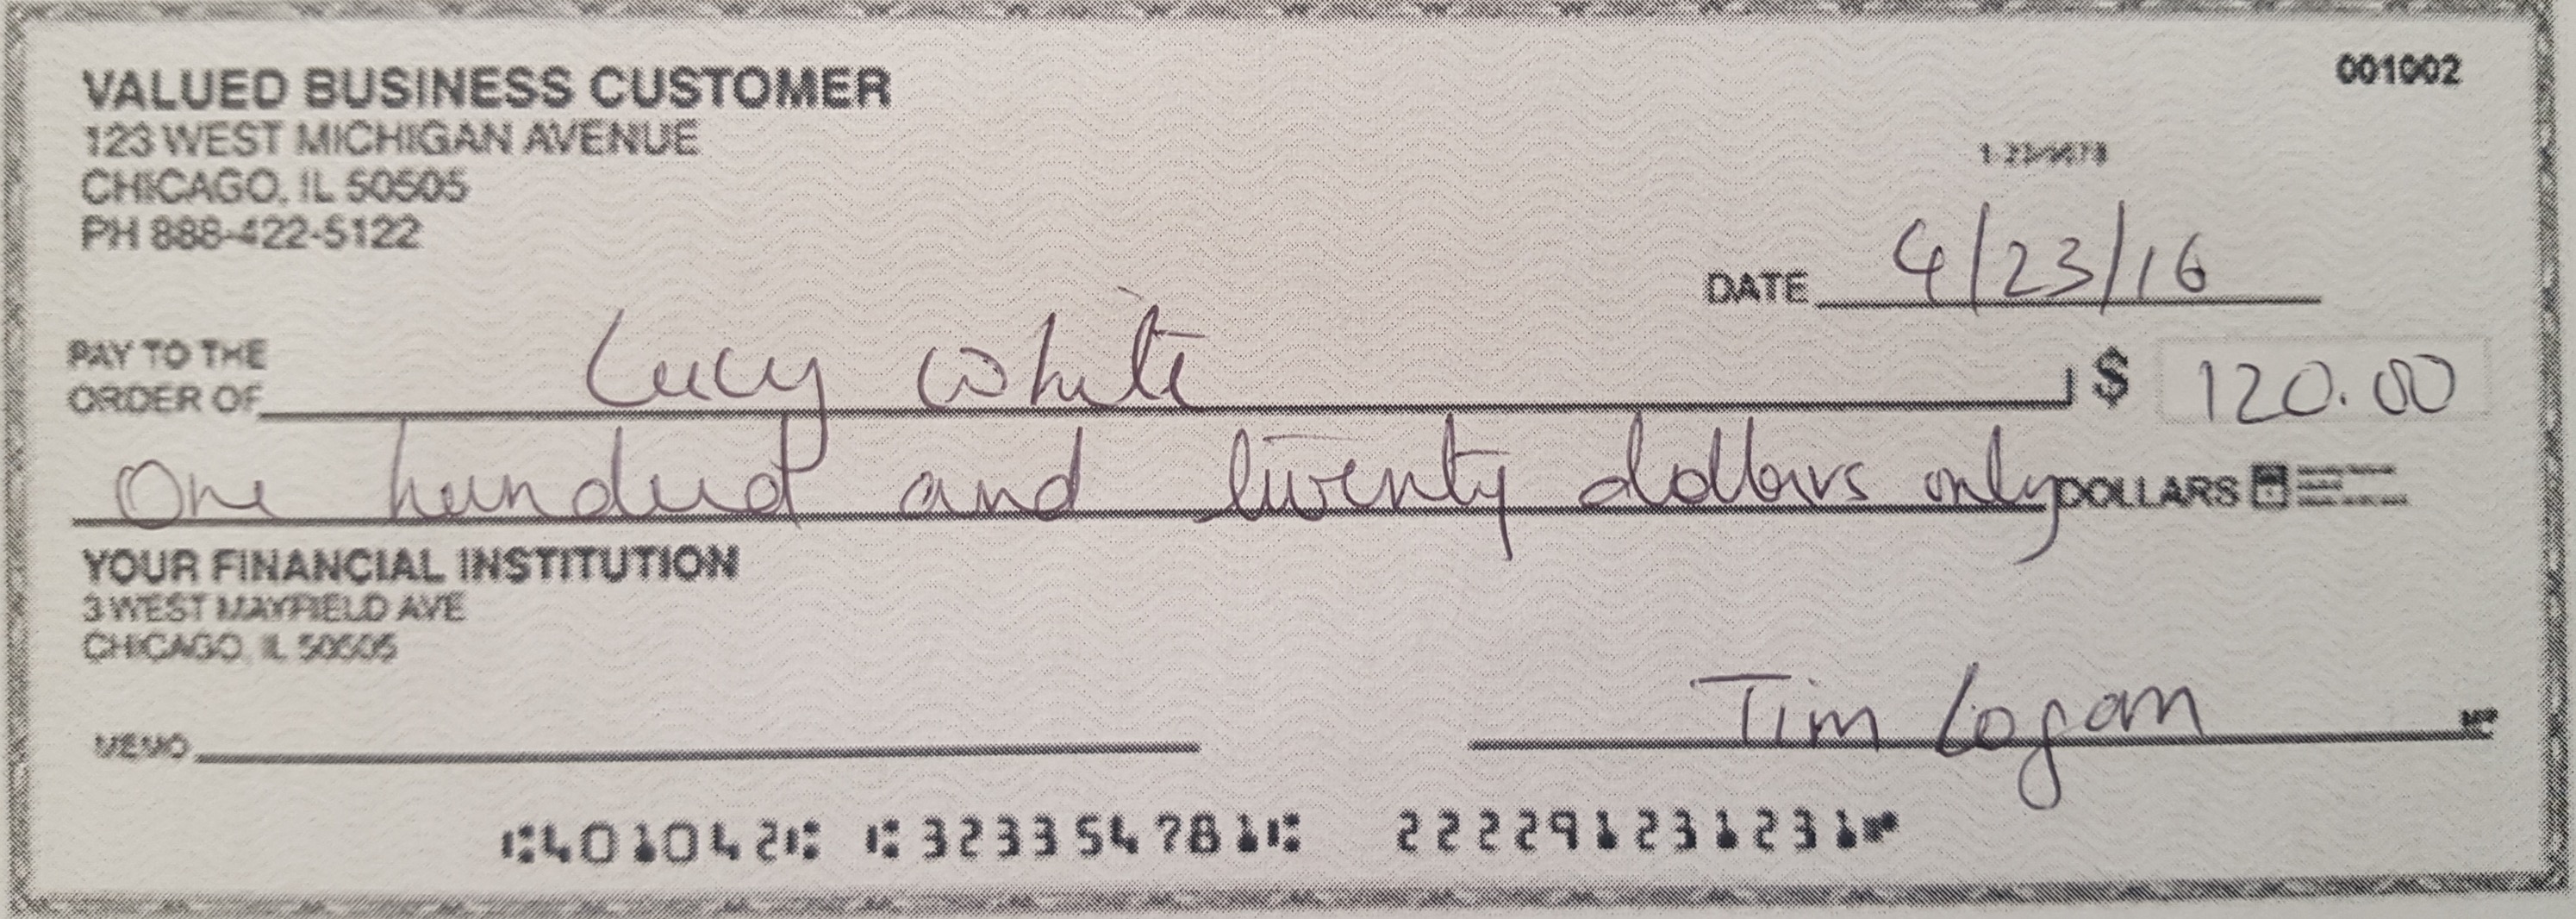 VALUED BUSINESS CUSTOMER
001002
123 WEST MICHIGAN AVENUE
CHICAGO, IL 50505
PH 888-422-5122
DATE 4/23/16
PAY TO THE
ORDER OF Lucy White $ 120.00
One hundred and twenty dollars only DOLLARS
YOUR FINANCIAL INSTITUTION
3 WEST MAYFIELD AVE
CHICAGO, IL 50505
MEMO Tim Logan MP
⑆401042⑆ ⑆323354781⑆ 222291231231⑈